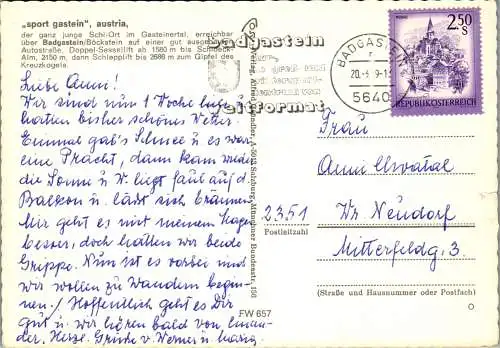 „sport gastein", austria,
der ganz junge Schi-Ort im Gasteinertal, erreichbar
über Badgastein/Böckstein auf einer gut ausgebauten
Autostraße. Doppel-Sessellift ab 1580 m bis Schideck-
Alm, 2150 m, dann Schlepplift bis 2686 m zum Gipfel des
Kreuzkogels.
Liebe Anni!
Wir sind nun 1 Woche hier u.
hatten bisher schönes Wetter.
Einmal gab's Schnee u es war
eine Pracht, dann kam wieder
die Sonne u W. liegt faul auf d.
Balkon u. läßt sich bräunen.
Mir geht es mit meinem Magen
besser, doch hatten wir beide
Grippe. Nun ist es vorbei und
wir wollen zu Wandern begin-
nen. Hoffentlich geht es Dir
gut u wir hören bald von einan-
der. Herzl. Grüße v Werner u Maria
Badgastein
Weltformat
BADGASTEIN
5640
2.50
S
REPUBLIK ÖSTERREICH
Frau
Anni Chvatal
2351
Wr. Neudorf
Postleitzahl
Mitterfeldg. 3.
(Straße und Hausnummer oder Postfach)
FW 657